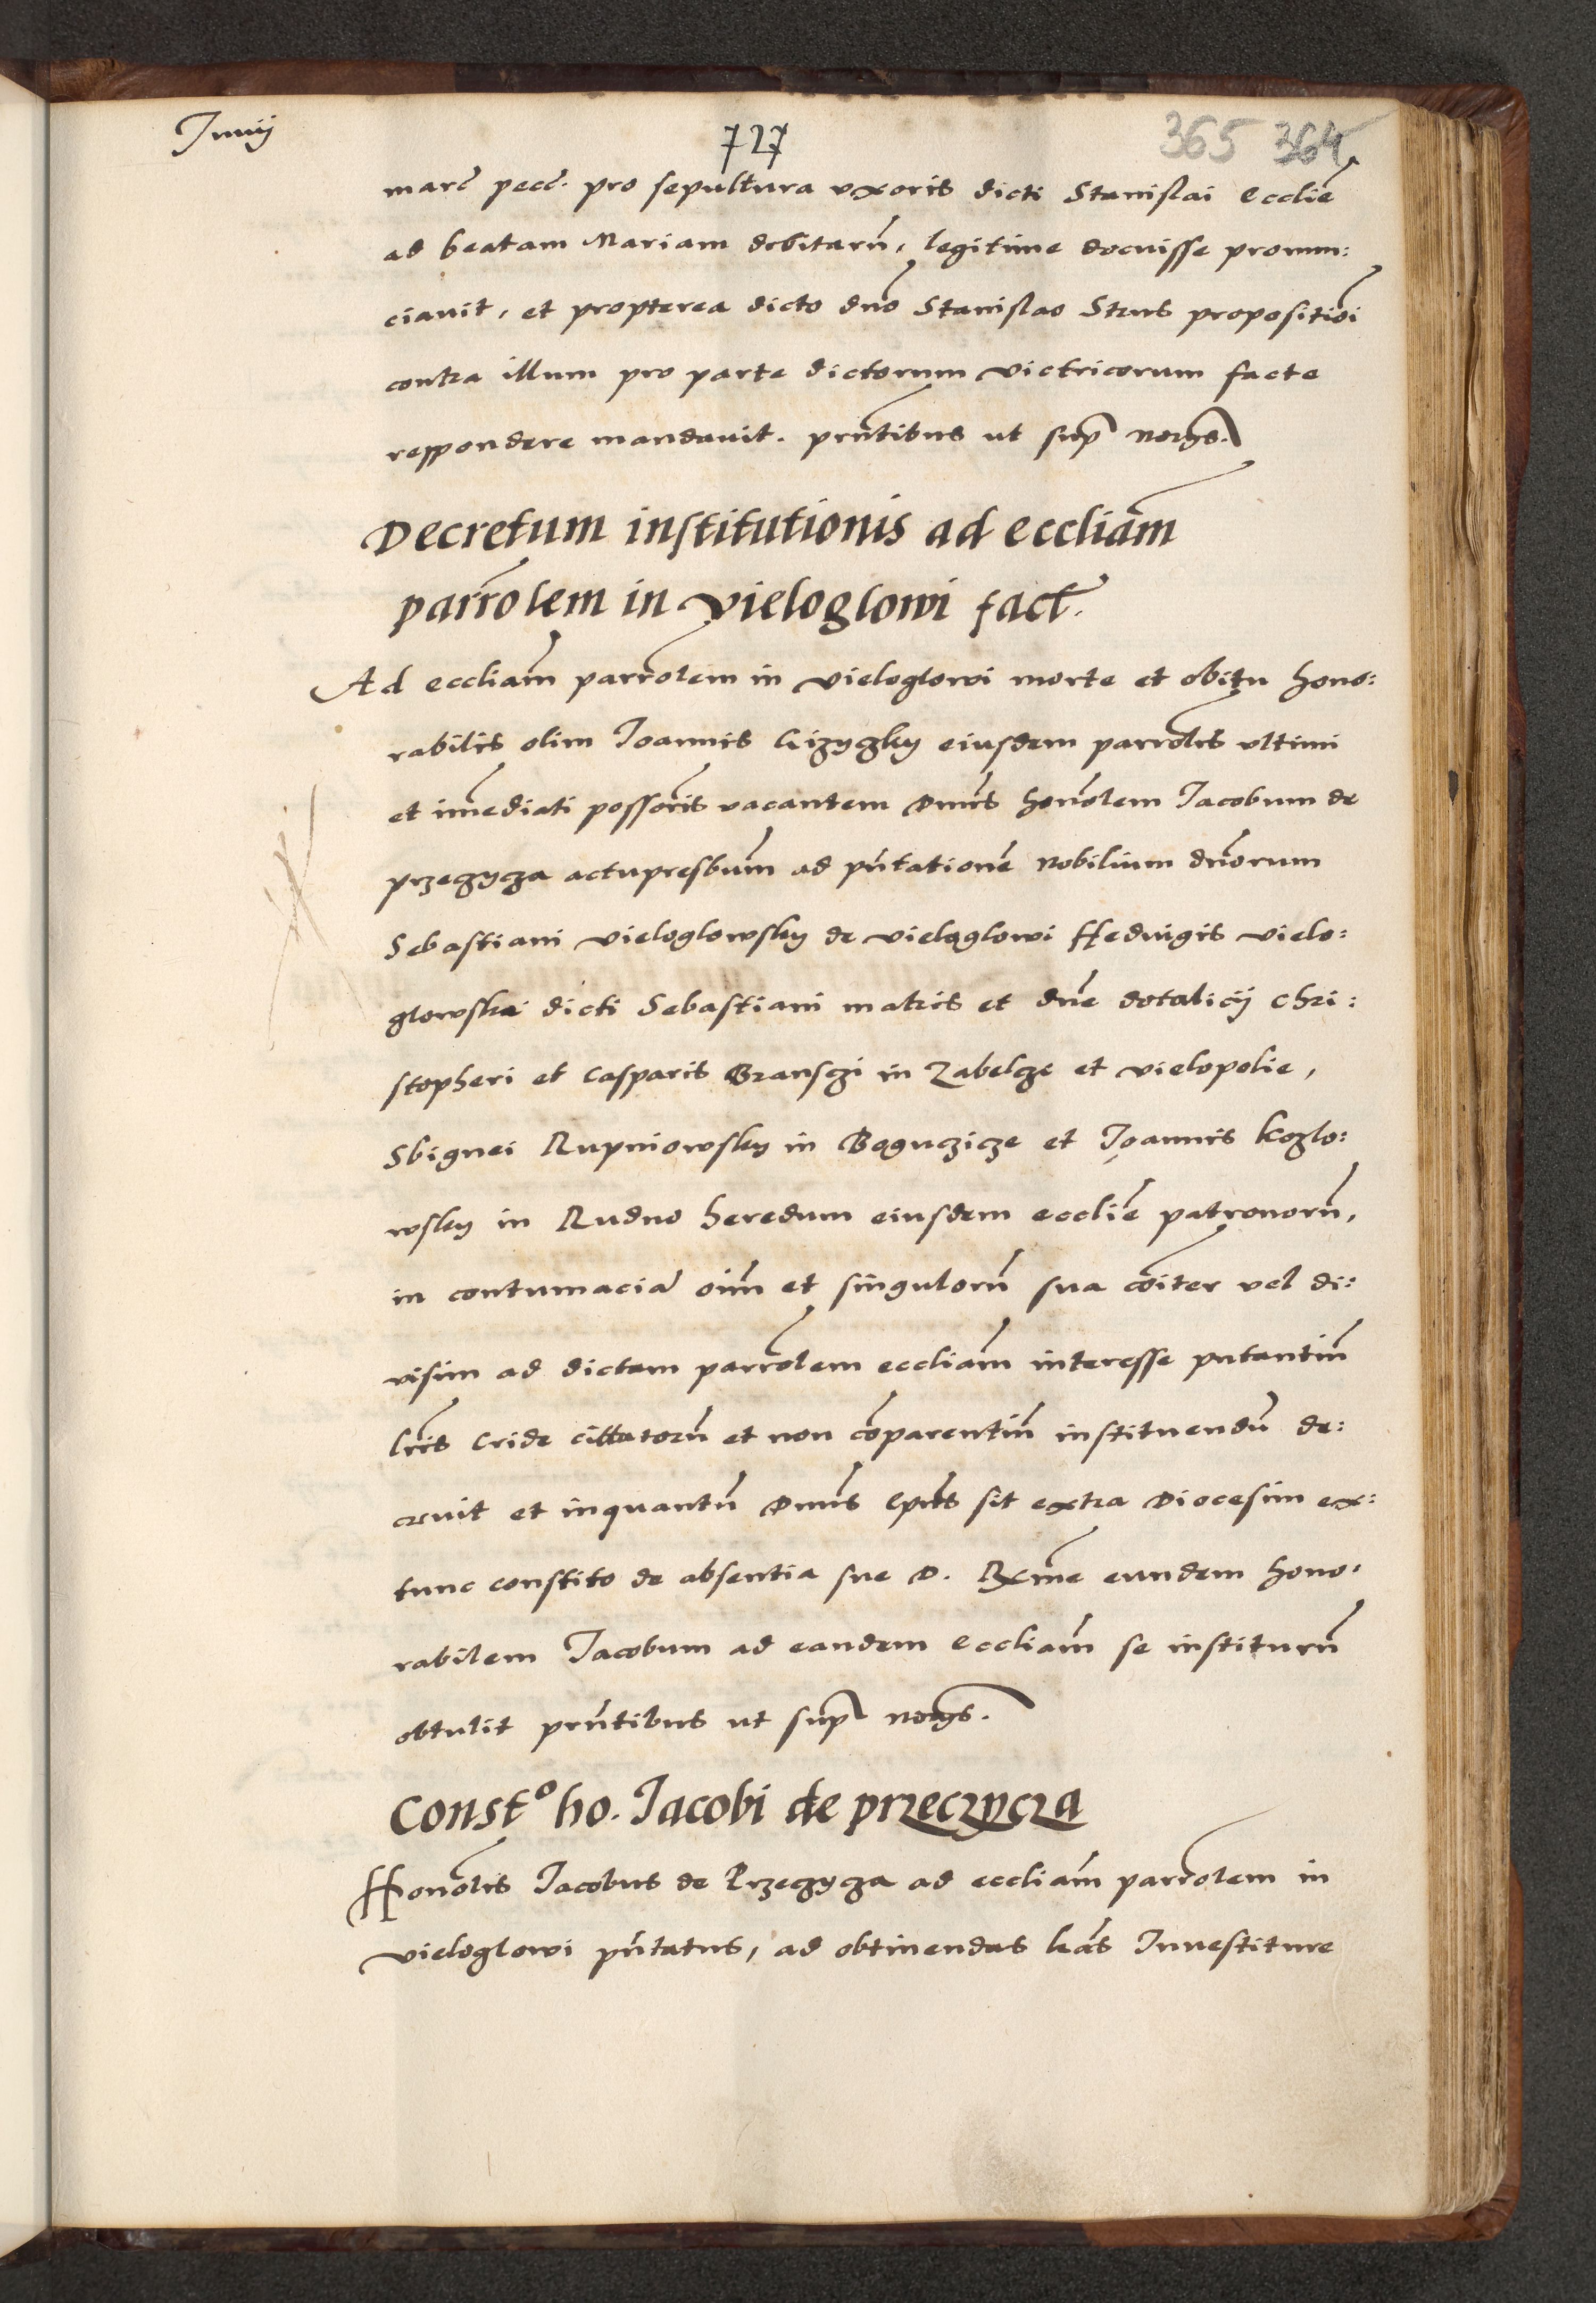 Junij
727
365 364
marc̃ pecc̃. pro sepultura uxoris dicti Stanislai Eccliẽ
ad beatam Mariam debitarũ, legitime docuisse pronun:
ciavit, et propterea dicto dño Stanislao Strus propositiõi
contra illum pro parte dictorum victricorum facte
respondere mandavit. pñtibus ut sup̃
Decretum institutionis ad eccliam̃
parrõlem in vieloglowi fact̃.
Ad eccliam̃ parrõlem in vieloglowi morte et obitu hono:
rabilis olim Joannis eiusdem parrõlis ultimi
et im̃ediati possoris̃ vacantem Dnus̃ honõlem Jacobum de
przeczycza actupresbum̃ ad pñtationẽ Nobilium dñorum
Sebastiani vieloglowsky de vieloglowi Hedvigis vielo:
glowska dicti Sebastiani matris et dñe dotalicij Chri:
stopheri et Casparis Bransczi in Zabelcze et vielopolie,
Sbignei Rupniowsky in Boguczicze et Joannis Kozlo:
wsky in Rudno heredum eiusdem eccliẽ patronorũ,
in contumaciã oim̃ et singulorũ sua cõiter vel di:
visim ad dictam parrõlem eccliam̃ interesse putantiũ
lrĩs Cride citatorũ et non cõparentiũ instituendũ de:
crevit et inquantũ Dnus̃ Epũs sit extra Diocesim ex:
tunc constito de absentia sue D. Rx̃me eundem hono:
rabilem Jacobum ad eandem Eccliam̃ se institurũ
obtulit pñtibus ut sup̃
Const.º ho. Jacobi de przeczycza
Honõlis Jacobus de Przeczycza ad eccliam̃ parrõlem in
vieloglowi pñtatus, ad obtinendas lrãs Investiture